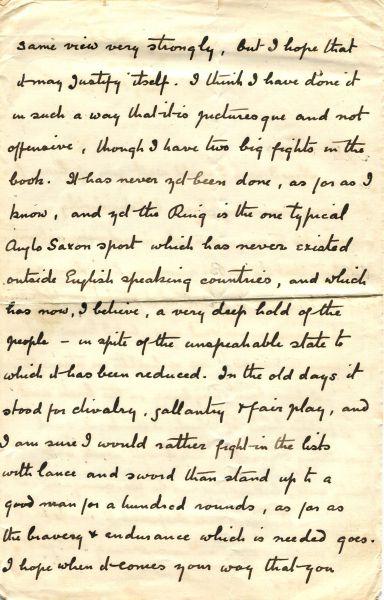 same view very strongly, but I hope that
it may justify itself. I think I have done it
in such a way that it is picturesque and not
offensive, though I have two big fights in the
book. It has never yet been done, as far as I
know, and yet the Ring is the one typical
Anglo Saxon sport which has never existed
outside English speaking countries, and which
has now, I believe, a very deep hold of the
people – in spite of the unspeakable state to
which it has been reduced. In the old days it
stood for chivalry, gallantry & fair play, and
I am sure I would rather fight in the lists
with lance and sword than stand up to a
good man for a hundred rounds, as far as
the bravery & endurance which is needed goes.
I hope when it comes your way that you